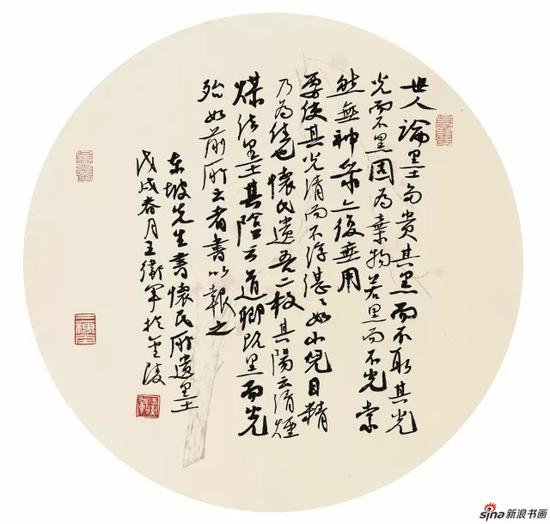 世人論墨多貴其黑而不取其光
光而不黑固為棄物若黑而不光索
然無神采亦復無用
要使其光清而不浮湛〻如小兒目精
乃為佳也懷民遺吾二枚其陽云清煙
煤法墨其陰云道卿既黑而光
殆如前所云者書以報之
东坡先生書懷民所遺墨
戊戌春月王衛軍於金陵
sina新浪书画